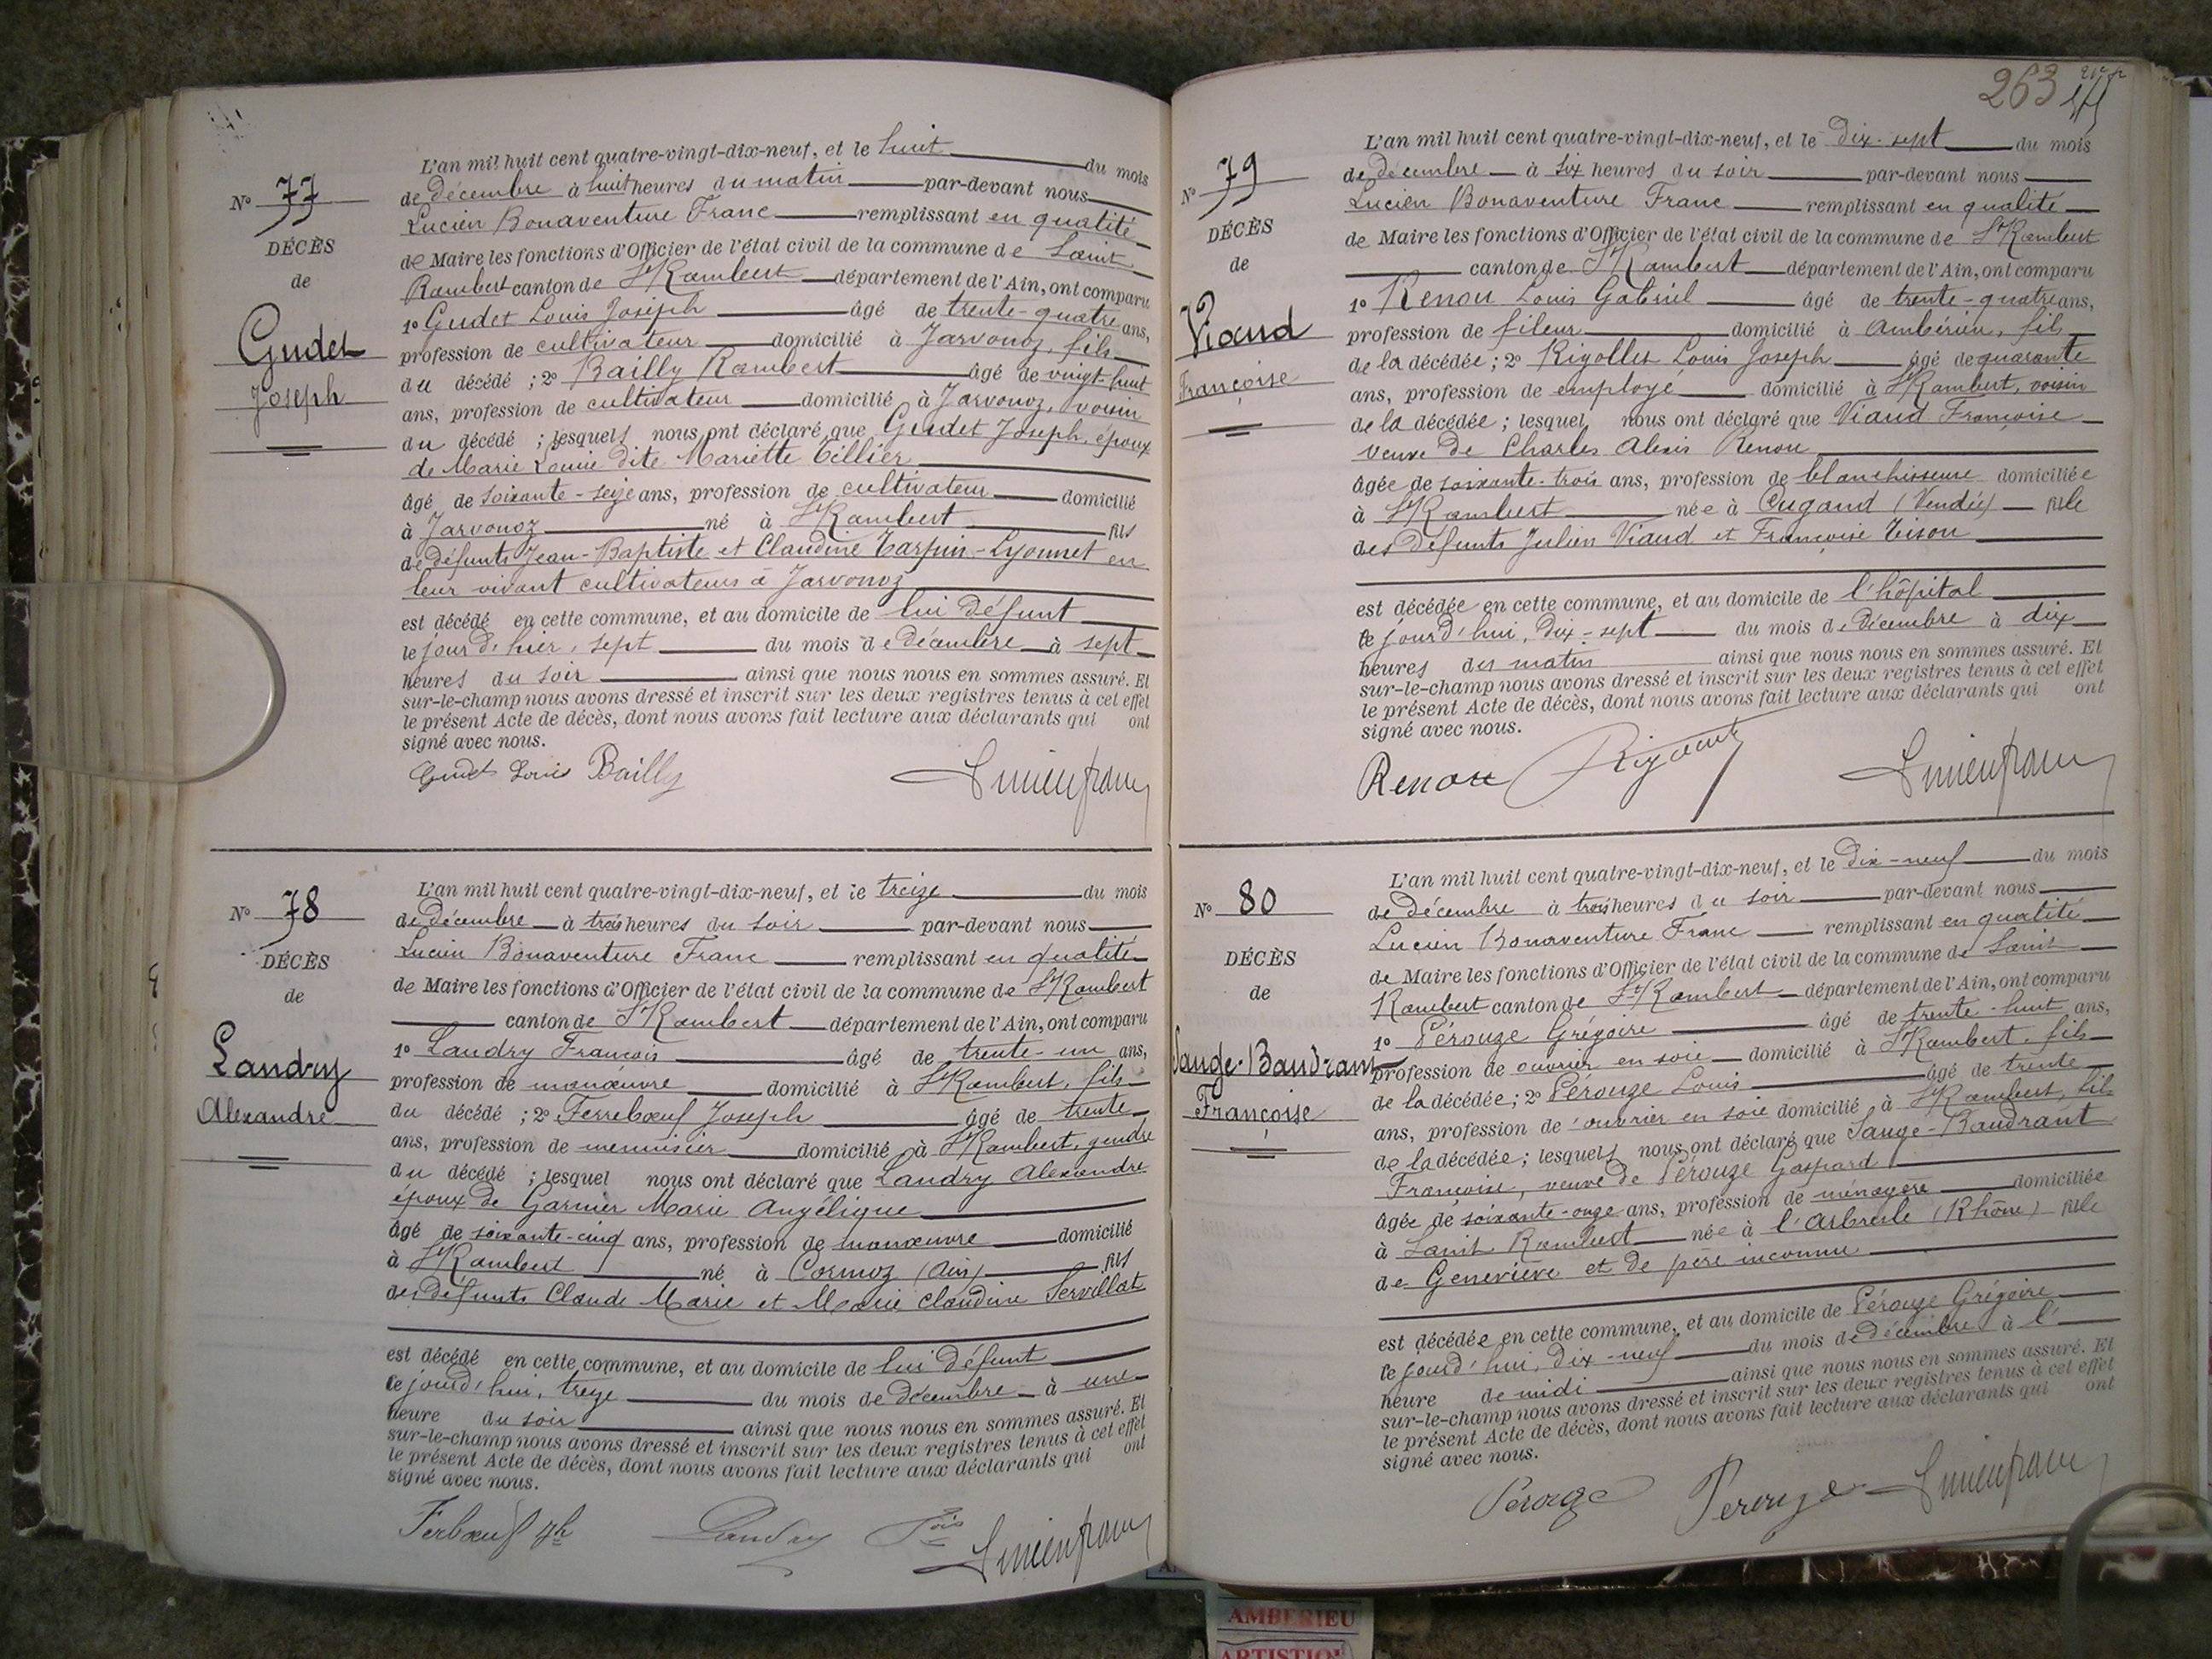 N° 77
DÉCÈS
de
Gudet
Joseph
L'an mil huit cent quatre-vingt-dix-neuf, et le huit du mois
de décembre à huit heures du matin par-devant nous
Lucien Bonaventure Franc remplissant en qualité
de Maire les fonctions d'Officier de l'état civil de la commune de Saint
Rambert canton de St Rambert département de l'Ain, ont comparu
1° Gudet Louis Joseph âgé de trente-quatre ans,
profession de cultivateur domicilié à Javornoz, fils
du décédé ; 2° Bailly Rambert âgé de vingt-huit
ans, profession de cultivateur domicilié à Javornoz, voisin
du décédé ; lesquels nous ont déclaré que Gudet Joseph, époux
de Marie Louise dite Mariette Tillier
âgé de soixante-seize ans, profession de cultivateur domicilié
à Javornoz né à St Rambert fils
de défunts Jean-Baptiste et Claudine Tarpin-Lyonnet en
leur vivant cultivateurs à Javornoz
est décédé en cette commune, et au domicile de lui défunt
le jour d'hier, sept du mois de décembre à sept
heures du soir ainsi que nous nous en sommes assuré. Et
sur-le-champ nous avons dressé et inscrit sur les deux registres tenus à cet effet
le présent Acte de décès, dont nous avons fait lecture aux déclarants qui ont
signé avec nous.
Gudet Louis Bailly Lucien franc
N° 78
DÉCÈS
de
Landry
Alexandre
L'an mil huit cent quatre-vingt-dix-neuf, et le treize du mois
de décembre à trois heures du soir par-devant nous
Lucien Bonaventure Franc remplissant en qualité
de Maire les fonctions d'Officier de l'état civil de la commune de St Rambert
canton de St Rambert département de l'Ain, ont comparu
1° Landry François âgé de trente-un ans,
profession de manœuvre domicilié à St Rambert, fils
du décédé ; 2° Ferrebœuf Joseph âgé de trente
ans, profession de menuisier domicilié à St Rambert, gendre
du décédé ; lesquel nous ont déclaré que Landry Alexandre
époux de Garnier Marie Angélique
âgé de soixante-cinq ans, profession de manœuvre domicilié
à St Rambert né à Cormoz (Ain) fils
des défunts Claude Marie et Marie Claudine Servillat
est décédé en cette commune, et au domicile de lui défunt
le jourd'hui, treize du mois de décembre à une
heure du soir ainsi que nous nous en sommes assuré. Et
sur-le-champ nous avons dressé et inscrit sur les deux registres tenus à cet effet
le présent Acte de décès, dont nous avons fait lecture aux déclarants qui ont
signé avec nous.
Ferbœuf Jh Landry fois Lucien franc
263
N° 79
DÉCÈS
de
Viaud
Françoise
L'an mil huit cent quatre-vingt-dix-neuf, et le dix-sept du mois
de décembre à six heures du soir par-devant nous
Lucien Bonaventure Franc remplissant en qualité
de Maire les fonctions d'Officier de l'état civil de la commune de St Rambert
canton de St Rambert département de l'Ain, ont comparu
1° Renou Louis Gabriel âgé de trente-quatre ans,
profession de fileur domicilié à Ambérieu, fils
de la décédée ; 2° Rigollet Louis Joseph âgé de quarante
ans, profession de employé domicilié à St Rambert, voisin
de la décédée ; lesquel nous ont déclaré que Viaud Françoise
veuve de Charles Alexis Renou
âgée de soixante-trois ans, profession de blanchisseuse domiciliée
à St Rambert née à Cugand (Vendée) fille
des défunts Julien Viaud et Françoise Tison
est décédée en cette commune, et au domicile de l'hôpital
le jourd'hui, dix-sept du mois de décembre à dix
heures du matin ainsi que nous nous en sommes assuré. Et
sur-le-champ nous avons dressé et inscrit sur les deux registres tenus à cet effet
le présent Acte de décès, dont nous avons fait lecture aux déclarants qui ont
signé avec nous.
Renou Lucien franc
N° 80
DÉCÈS
de
Sauge-Baudrant
Françoise
L'an mil huit cent quatre-vingt-dix-neuf, et le dix-neuf du mois
de décembre à trois heures du soir par-devant nous
Lucien Bonaventure Franc remplissant en qualité
de Maire les fonctions d'Officier de l'état civil de la commune de Saint
Rambert canton de St Rambert département de l'Ain, ont comparu
1° Pérouze Grégoire âgé de trente-huit ans,
profession de ouvrier en soie domicilié à St Rambert, fils
de la décédée ; 2° Pérouze Louis âgé de trente
ans, profession de ouvrier en soie domicilié à St Rambert, fils
de la décédée ; lesquels nous ont déclaré que Sauge-Baudrant
Françoise, veuve de Pérouze Gaspard
âgée de soixante-onze ans, profession de ménagère domiciliée
à Saint Rambert née à l'Arbresle (Rhône) fille
de Geneviève et de père inconnu
est décédée en cette commune, et au domicile de Pérouze Grégoire
le jourd'hui, dix-neuf du mois de décembre à l'
heure de midi ainsi que nous nous en sommes assuré. Et
sur-le-champ nous avons dressé et inscrit sur les deux registres tenus à cet effet
le présent Acte de décès, dont nous avons fait lecture aux déclarants qui ont
signé avec nous.
Perouze Perouze Lucien franc
AMBERIEU